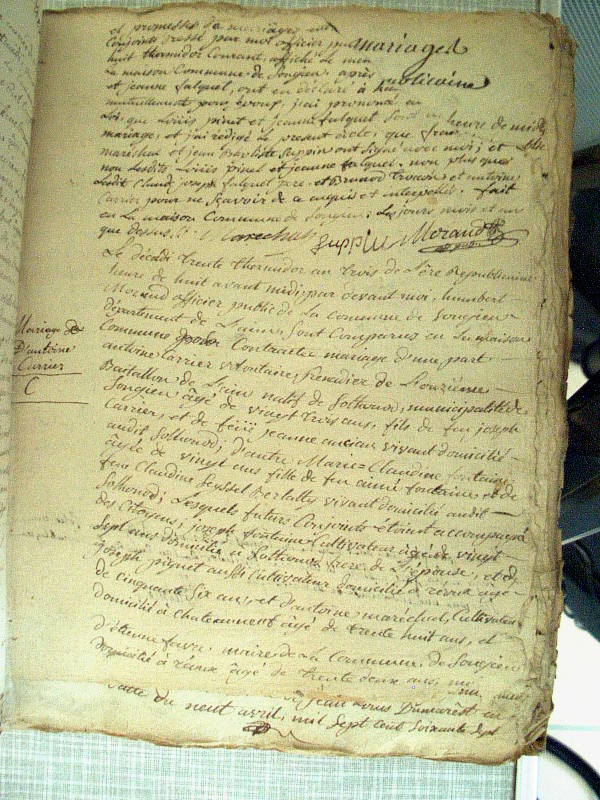 et promesses de mariages
conjoints, dressé par moi officier public mariages
huit thermidor Courant, affiché de
la maison Commune de Songieu, après publications
et jeanne falquet, ont en déclaré à
mutuellement pour Epoux, j'ai prononcé au
Loi, que Loüis pinet et jeanne falquet sont en heure de midi
mariage, et j'ai rédigé le présent acte, que
maréchal et jean Baptiste Suppin ont signé avec moi, et
non Lesdits Loüis pinet et jeanne falquet, non plus que
Ledit Claude joseph falquet pere, et et antoine
Carrier pour ne scavoir de ce enquis et interpellés. fait
en La maison Commune de Songieu, Les jours mois et an
que dessus. Marechal Suppin Morand
Le décadi trente thermidor an trois de L'ère Républicaine
heure de huit avant midi, par devant moi, humbert
Morand officier public de La Commune de Songieu
département de L'ain, sont Comparus en La maison
Commune pour Contracter mariage d'une part
antoine Carrier volontaire, Grenadier de L'onzième
Bataillon de L'ain natif de Sothonod, municipalité de
Songieu âgé de vingt trois ans, fils de feu joseph
Carrier, et de feüe jeanne ancian vivant domicilié
audit Sothonod; D'autre Marie-Claudine fontaine
âgée de vingt ans fille de feu aimé fontaine, et de
feue Claudine Seyssel Berlatty vivant domicilié audit
Sothonod; Lesquels futurs Conjoints étoient accompagnés
des Citoyens, joseph fontaine Cultivateur âgé de vingt
sept ans domicilié à Sothonod frere de L'épouse, et de
joseph piquet aussi Cultivateur domicilié à réaux âgé
de cinquante six ans, et d'antoine maréchal, Cultivateur
domicilié à chatonnent âgé de trente huit ans, et
d'étienne favre maire de La Commune de Songieu
domicilié à réaux âgé de trente deux ans, moi
jean Louis Dumarêst
acte du neuf avril, mil sept cent soixante sept
Mariage de
D'antoine
Carrier
C